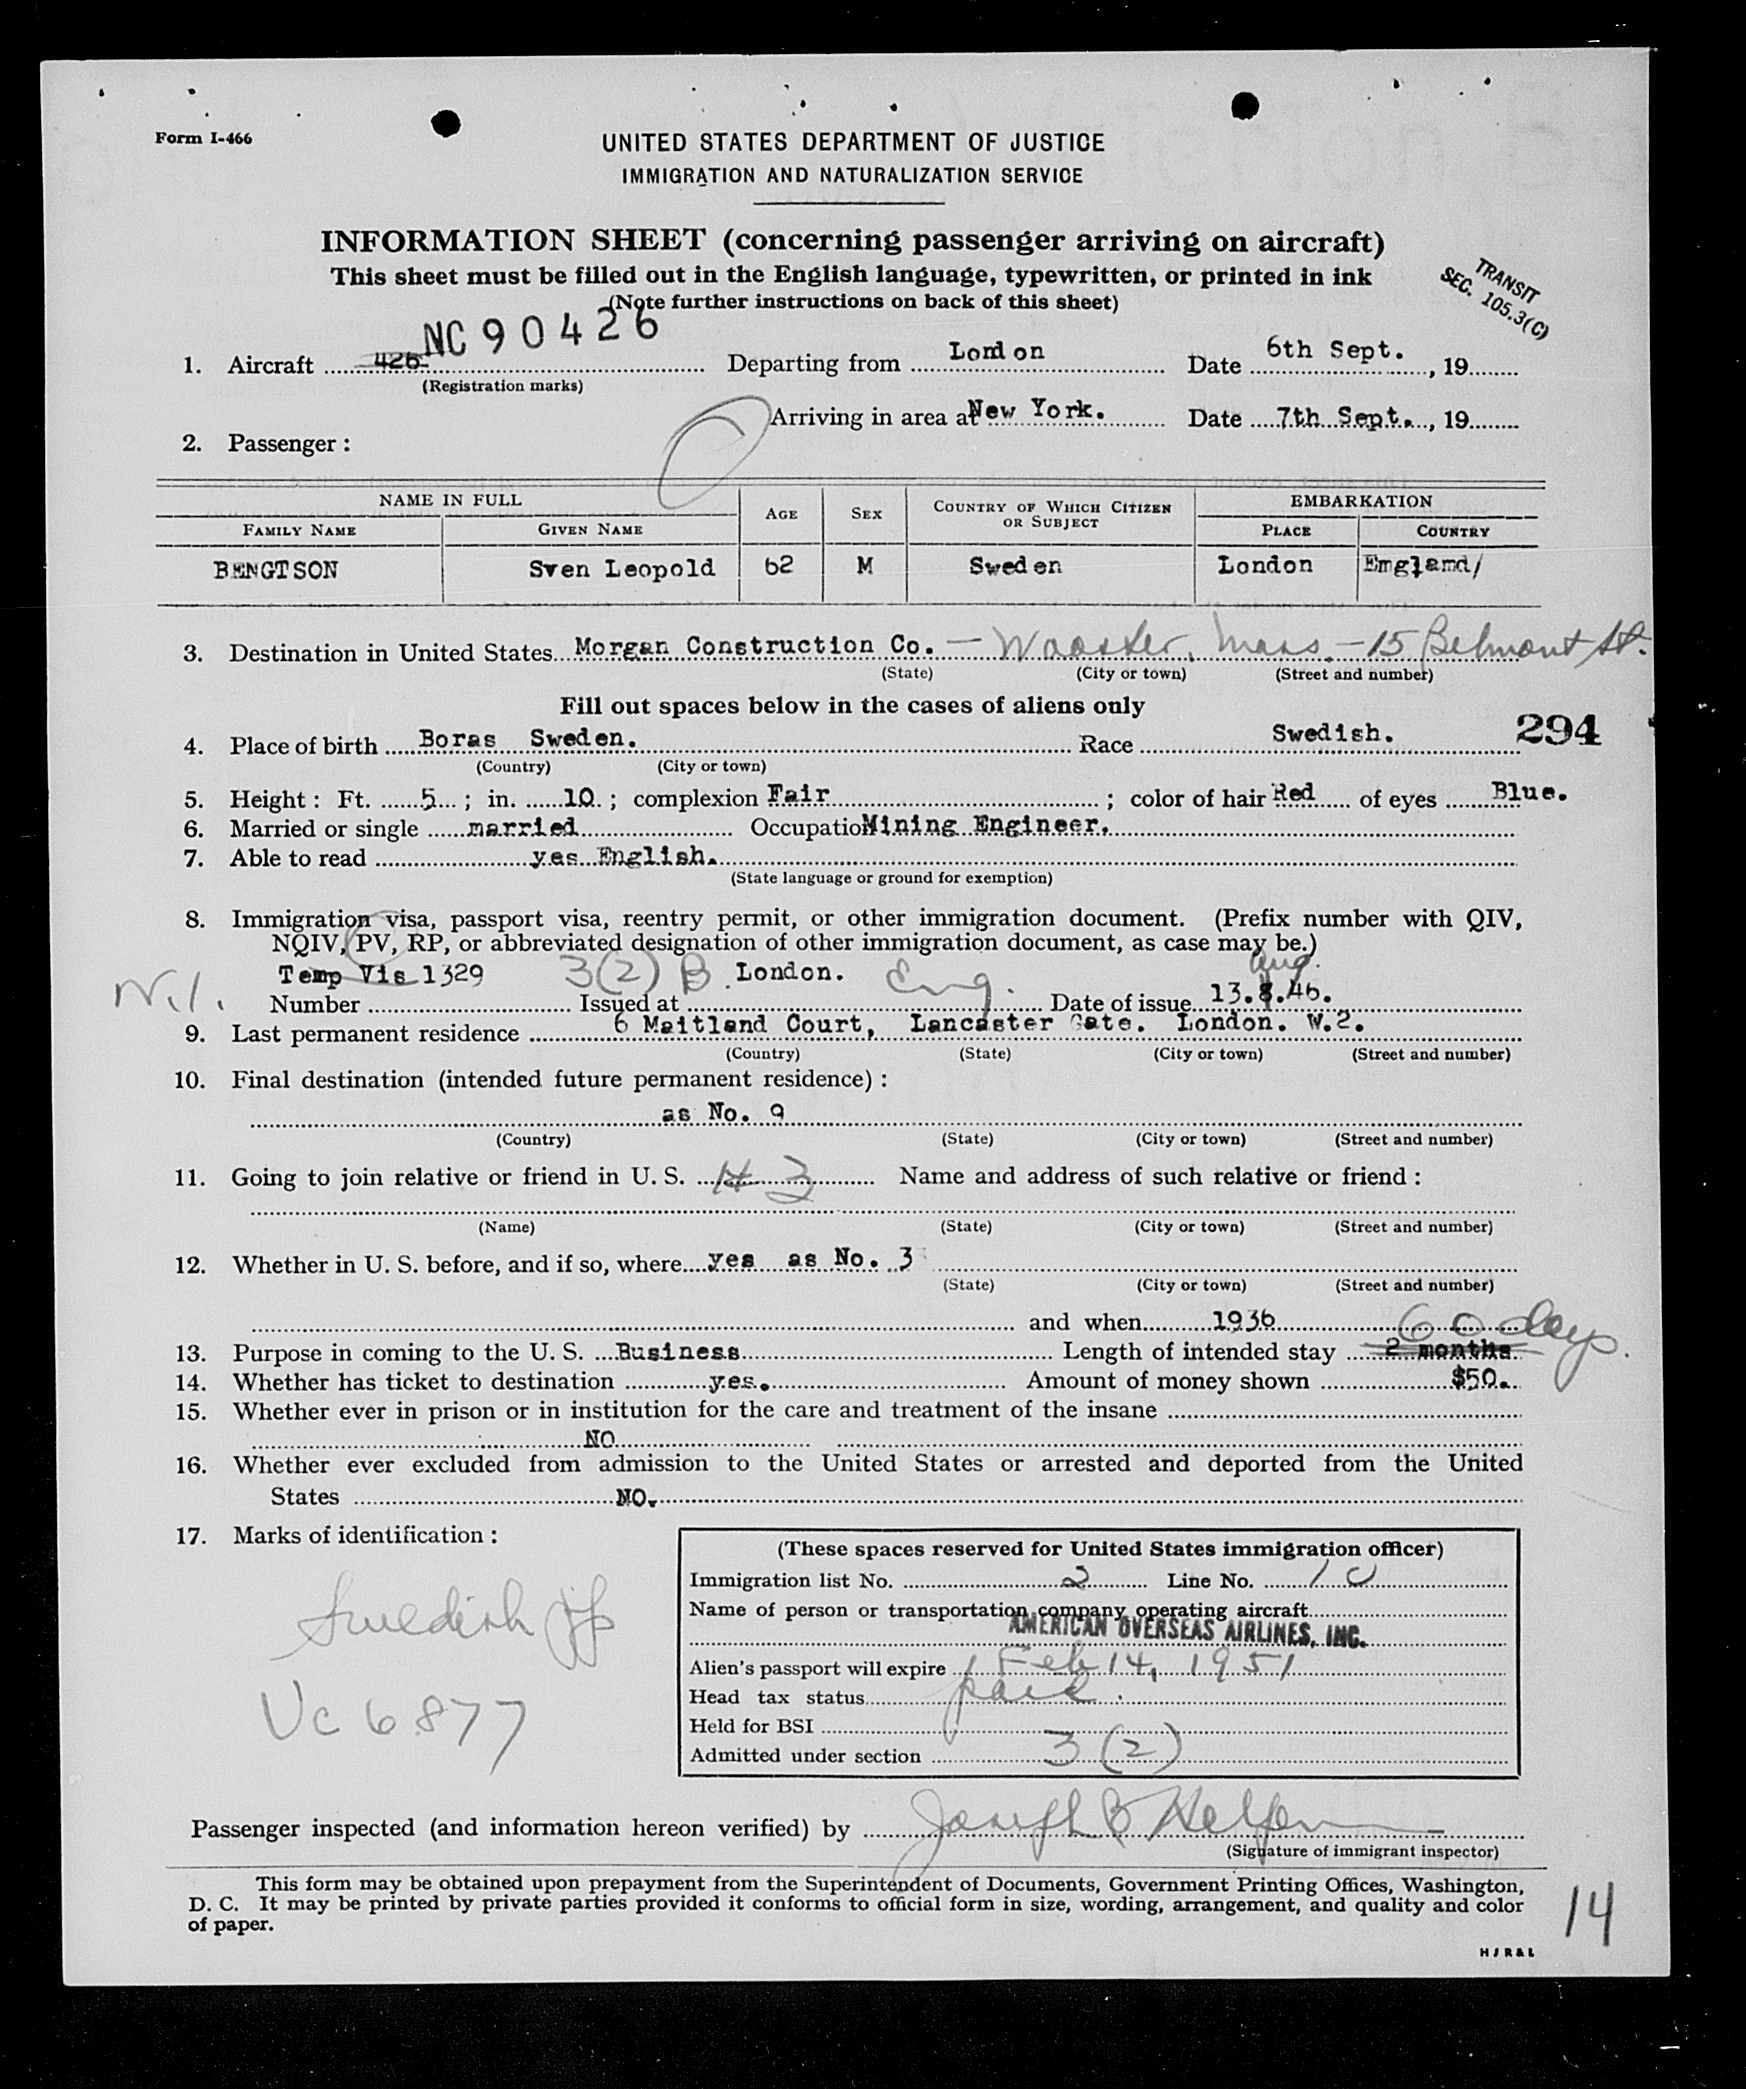 Form I-466
UNITED STATES DEPARTMENT OF JUSTICE
IMMIGRATION AND NATURALIZATION SERVICE
INFORMATION SHEET (concerning passenger arriving on aircraft)
This sheet must be filled out in the English language, typewritten, or printed in ink
(Note further instructions on back of this sheet)
TRANSIT
SEC. 105.3(C)
NC 90426
1. Aircraft 426 Departing from London Date 6th Sept. , 19
(Registration marks)
Arriving in area at New York. Date 7th Sept. , 19
2. Passenger :
NAME IN FULL AGE SEX COUNTRY OF WHICH CITIZEN OR SUBJECT EMBARKATION
FAMILY NAME GIVEN NAME PLACE COUNTRY
BENGTSON Sven Leopold 62 M Sweden London Emgland/
3. Destination in United States Morgan Construction Co. — Worcester, Mass. — 15 Belmont St.
(State) (City or town) (Street and number)
Fill out spaces below in the cases of aliens only
294
4. Place of birth Boras Sweden. Race Swedish.
(Country) (City or town)
5. Height : Ft. 5 ; in. 10 ; complexion Fair ; color of hair Red of eyes Blue.
6. Married or single married Occupatio Mining Engineer.
7. Able to read yes English.
(State language or ground for exemption)
8. Immigration visa, passport visa, reentry permit, or other immigration document. (Prefix number with QIV,
NQIV, PV, RP, or abbreviated designation of other immigration document, as case may be.)
Temp Vis 1329 3(2) B London. Eng. Aug.
Number Issued at Date of issue 13.8.46.
9. Last permanent residence 6 Maitland Court, Lancaster Gate. London. W.2.
(Country) (State) (City or town) (Street and number)
10. Final destination (intended future permanent residence) :
as No. 9
(Country) (State) (City or town) (Street and number)
11. Going to join relative or friend in U. S. # 3 Name and address of such relative or friend :
(Name) (State) (City or town) (Street and number)
12. Whether in U. S. before, and if so, where yes as No. 3
(State) (City or town) (Street and number)
and when 1936
60 days.
13. Purpose in coming to the U. S. Business Length of intended stay 2 months
14. Whether has ticket to destination yes. Amount of money shown $50.
15. Whether ever in prison or in institution for the care and treatment of the insane
NO
16. Whether ever excluded from admission to the United States or arrested and deported from the United
States NO.
17. Marks of identification :
Swedish
Vc 6877
(These spaces reserved for United States immigration officer)
Immigration list No. 2 Line No. 10
Name of person or transportation company operating aircraft
AMERICAN OVERSEAS AIRLINES, INC.
Alien's passport will expire Feb 14, 1951
Head tax status paid
Held for BSI
Admitted under section 3(2)
Passenger inspected (and information hereon verified) by Joseph B
(Signature of immigrant inspector)
This form may be obtained upon prepayment from the Superintendent of Documents, Government Printing Offices, Washington,
D. C. It may be printed by private parties provided it conforms to official form in size, wording, arrangement, and quality and color
of paper.
14
H J R & L